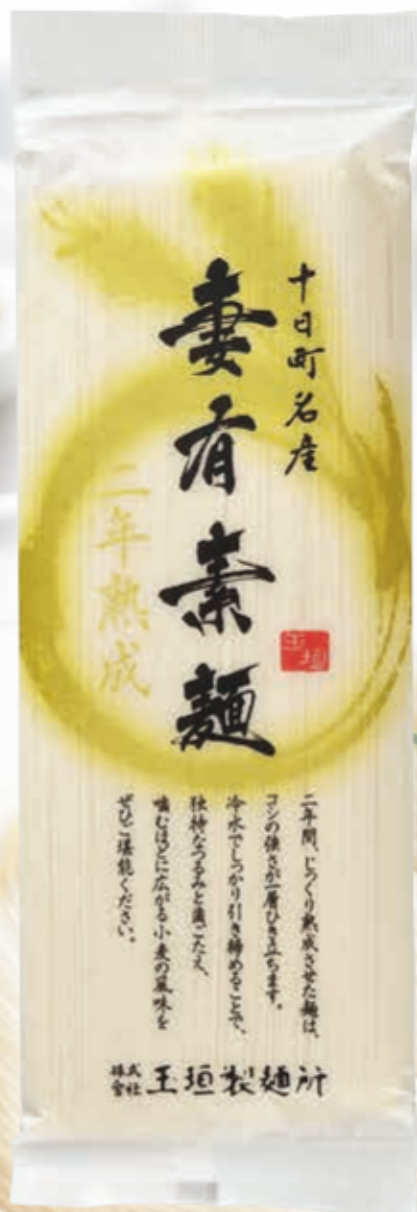 十日町名産
妻有素麺
二年熟成
玉垣
二年間、じっくり熟成させた麺は、
コシの強さが一層ひき立ちます。
冷水でしっかり引き締めることで、
独特なつるみと歯ごたえ、
噛むほどに広がる小麦の風味を
ぜひご堪能ください。
株式会社 玉垣製麺所